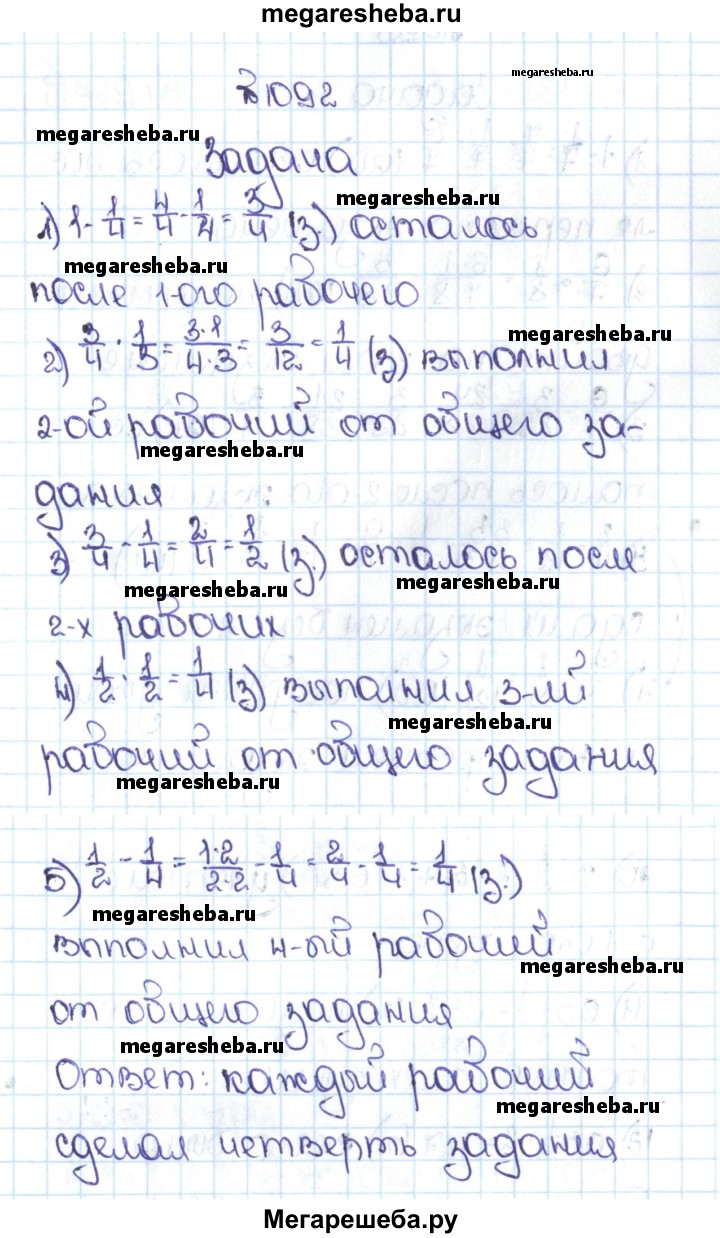 megaresheba.ru
megaresheba.ru
№1092
megaresheba.ru
Задача
1) 1 - 1/4 = 4/4 - 1/4 = 3/4 (з.) осталось
megaresheba.ru
megaresheba.ru
после 1-ого рабочего
2) 3/4 · 1/3 = 3·1/4·3 = 3/12 = 1/4 (з) выполнил
megaresheba.ru
2-ой рабочий от общего за-
megaresheba.ru
дания
3) 3/4 - 1/4 = 2/4 = 1/2 (з.) осталось после
megaresheba.ru
megaresheba.ru
2-х рабочих
4) 1/2 · 1/2 = 1/4 (з) выполнил 3-ий
megaresheba.ru
рабочий от общего задания
megaresheba.ru
5) 1/2 - 1/4 = 1·2/2·2 - 1/4 = 2/4 - 1/4 = 1/4 (з.)
megaresheba.ru
выполнил 4-ый рабочий
megaresheba.ru
от общего задания
megaresheba.ru
Ответ: каждый рабочий
megaresheba.ru
сделал четверть задания
Мегарешеба.ру